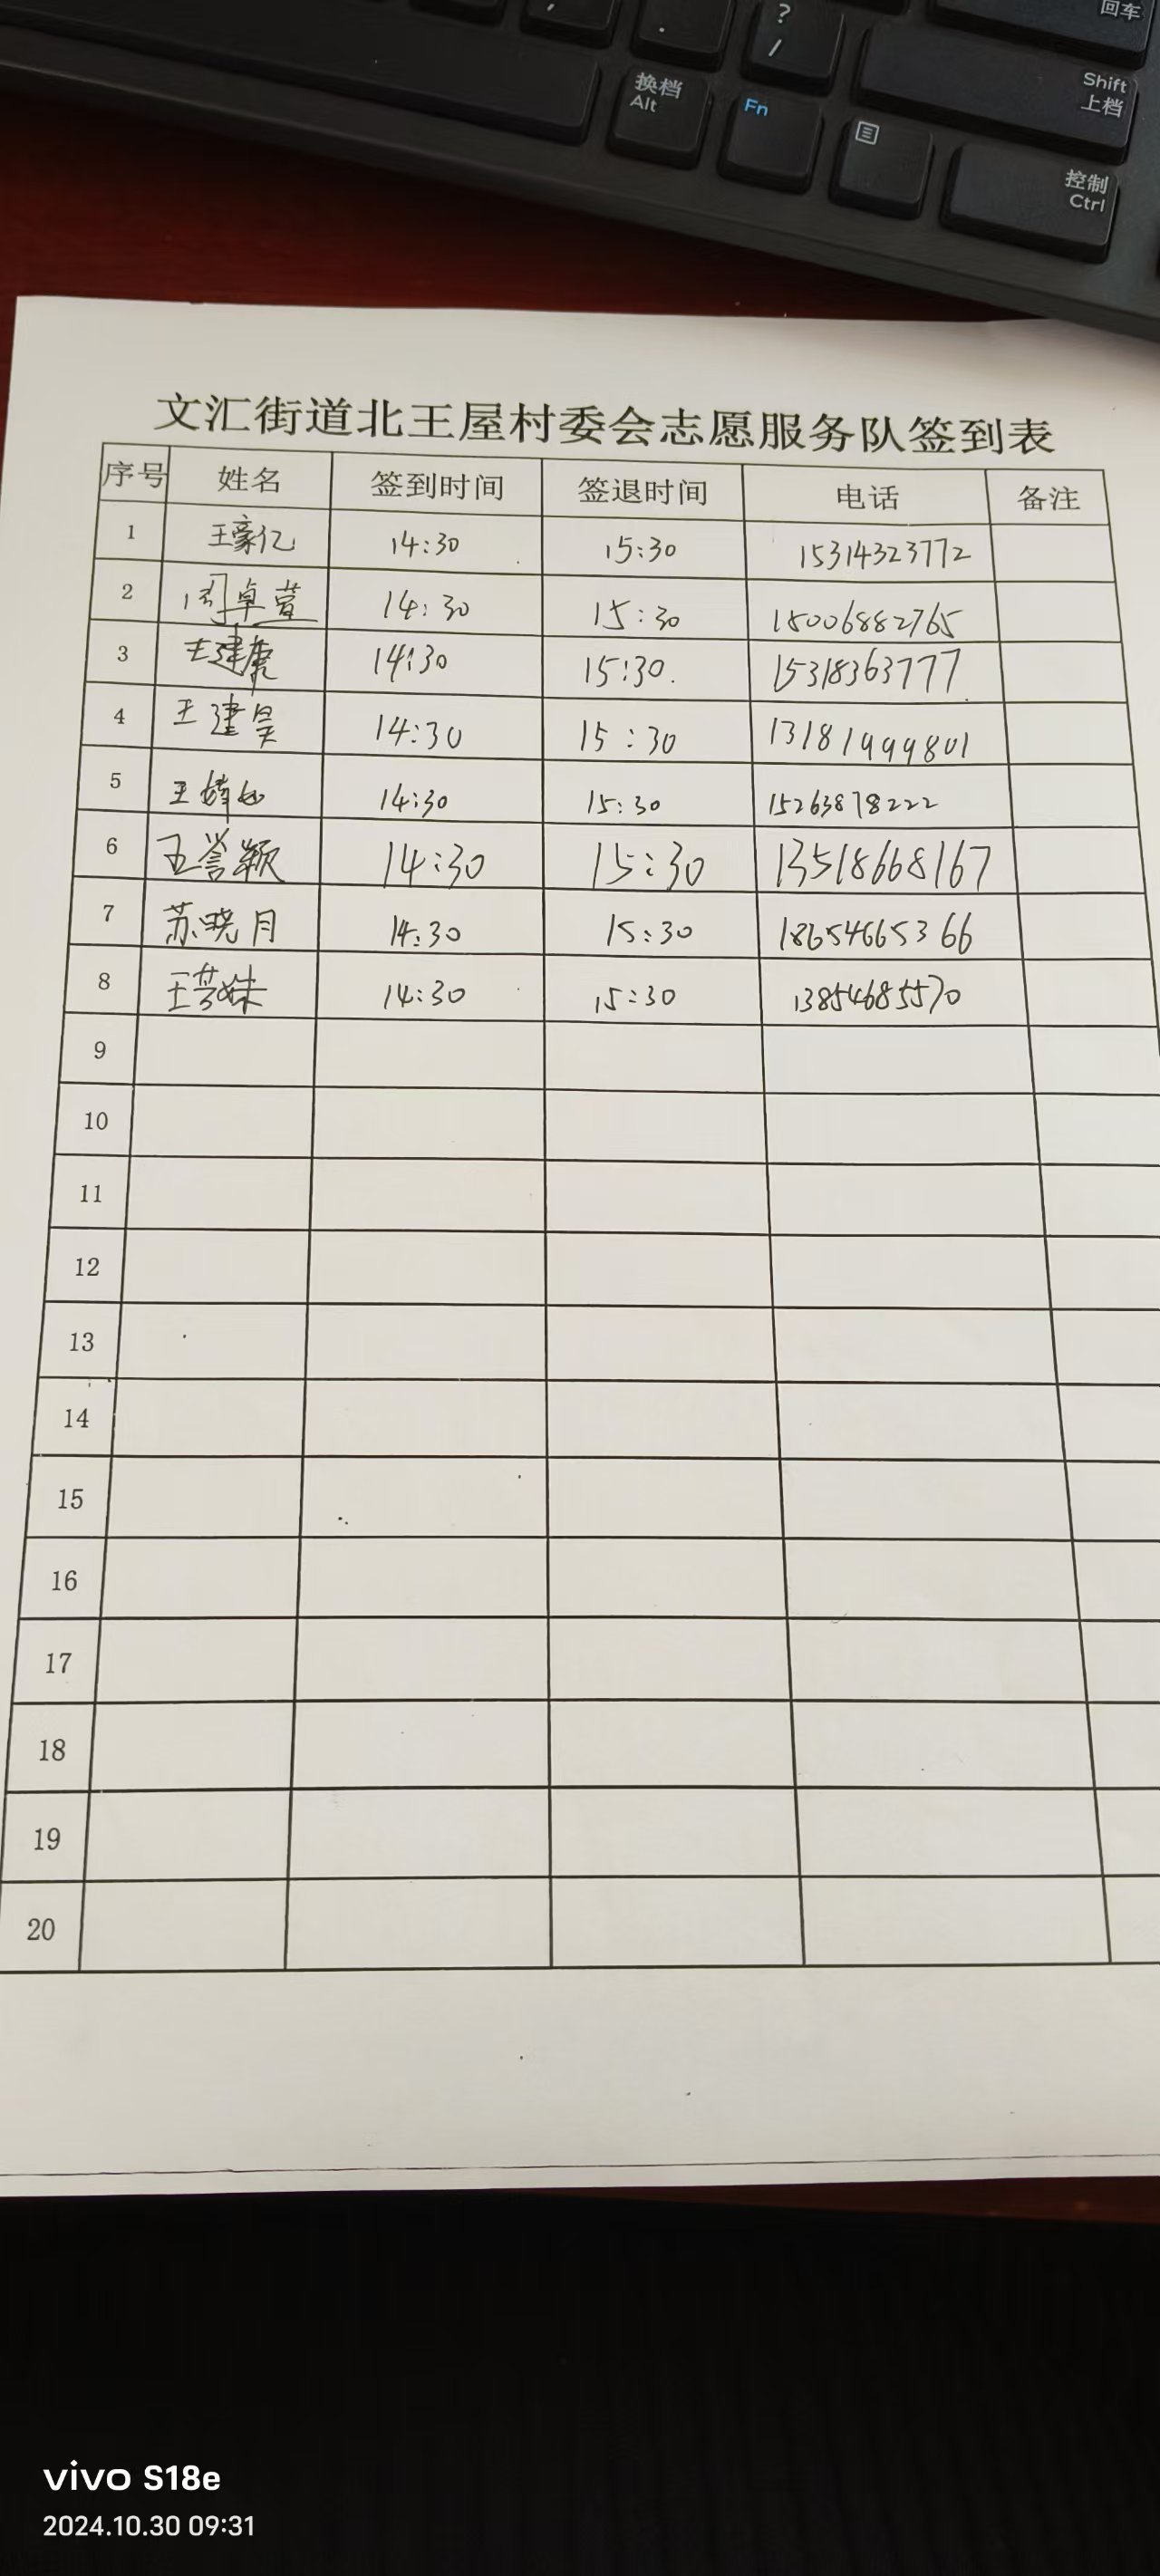 回车
?
/
,
.
换档
Alt
Fn
Shift
上档
控制
Ctrl
文汇街道北王屋村委会志愿服务队签到表
序号 姓名 签到时间 签退时间 电话 备注
1 王豪亿 14:30 15:30 15314323772
2 周卓萱 14:30 15:30 15006882765
3 王建虎 14:30 15:30. 15318363777
4 王建昊 14:30 15:30 13181999801
5 王 14:30 15:30 15263878222
6 王誉颖 14:30 15:30 13518668167
7 苏晓月 14:30 15:30 18654665366
8 王梦姝 14:30 15:30 13854685570
9
10
11
12
13
14
15
16
17
18
19
20
vivo S18e
2024.10.30 09:31